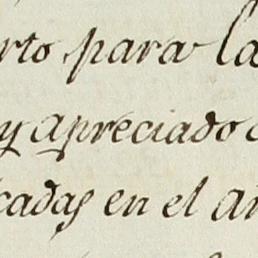 rto para la
y apreciado
cadas en el añ